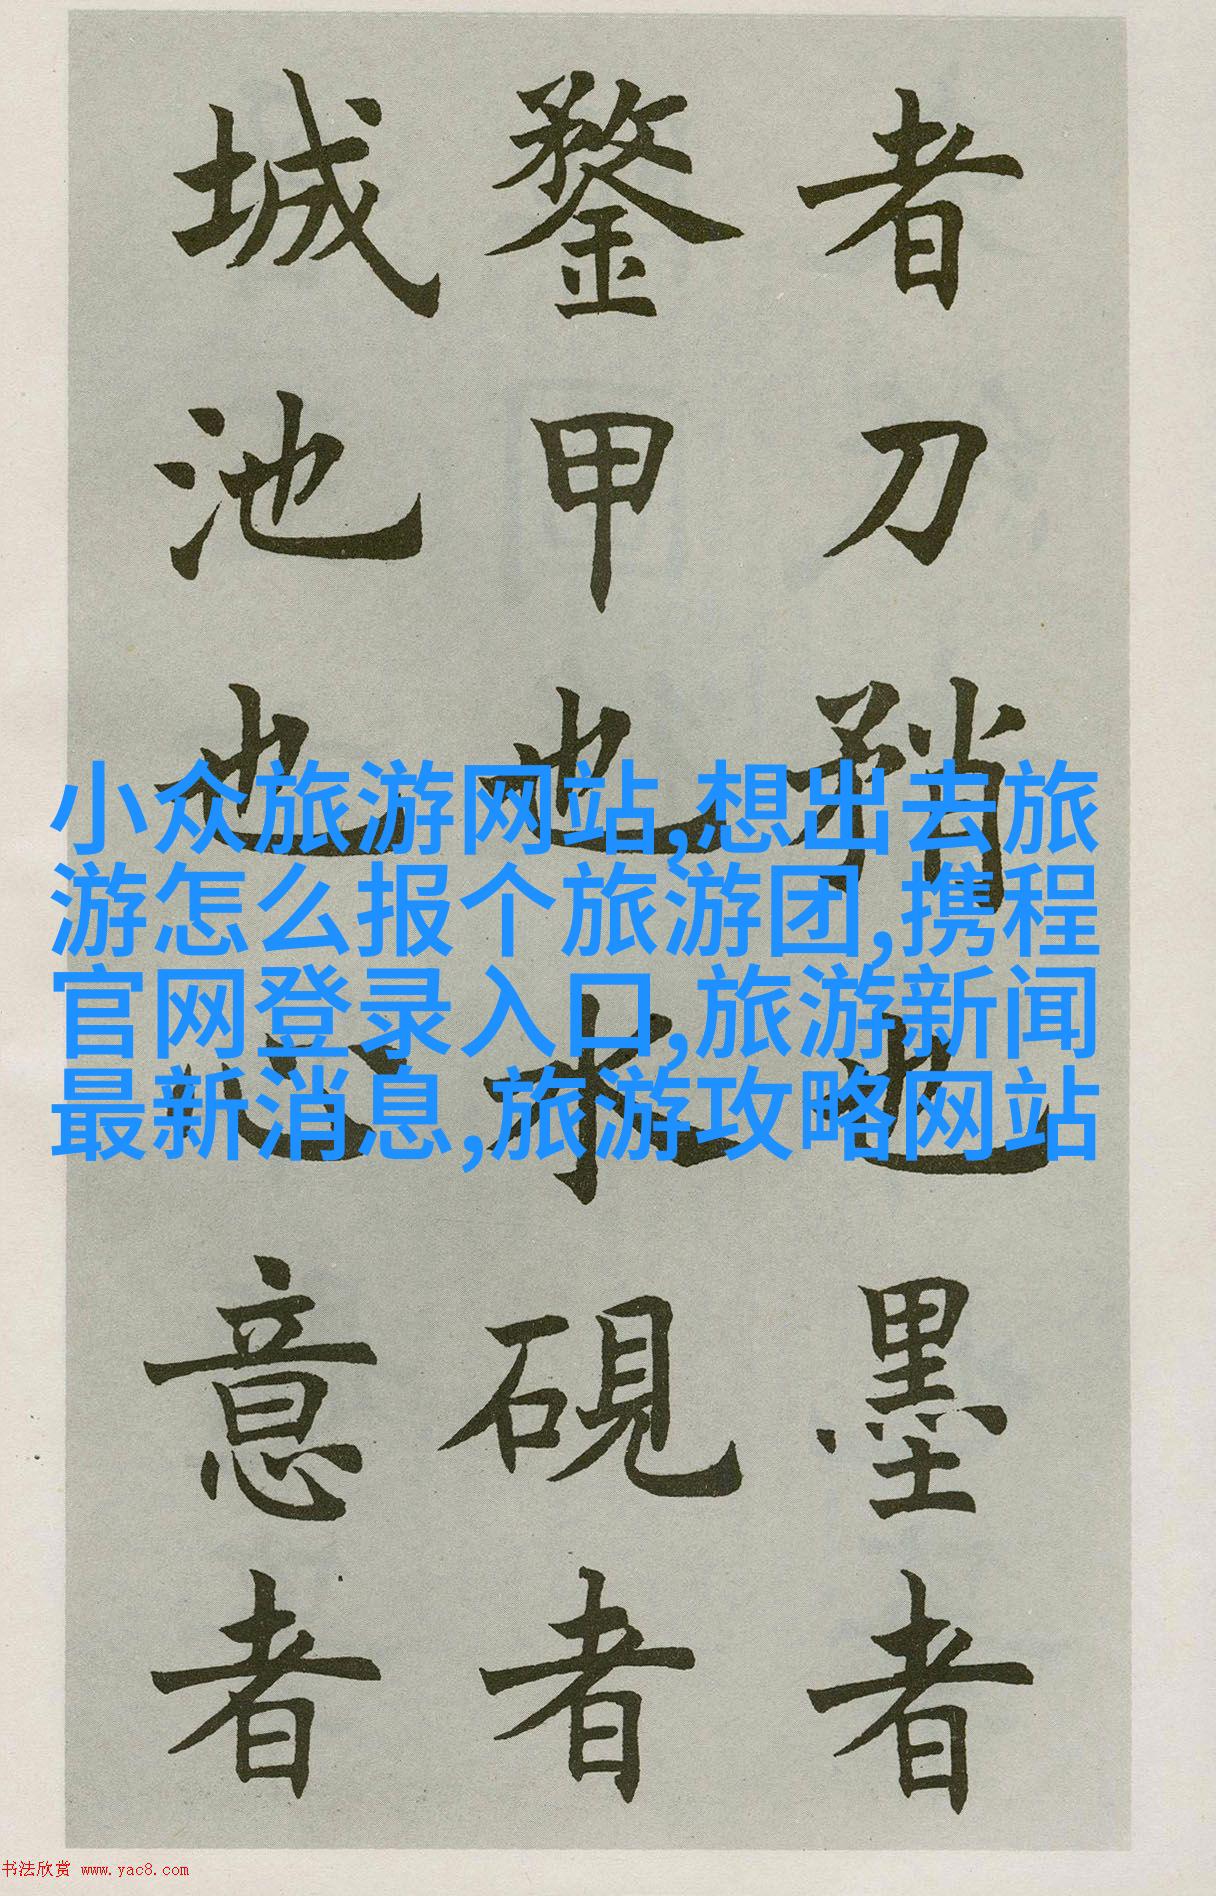 者刀矟也墨者
鍪甲也水硯者
城池也心意者
小众旅游网站,想出去旅
游怎么报个旅游团,携程
官网登录入口,旅游新闻
最新消息,旅游攻略网站
书法欣赏 www.yac8.com